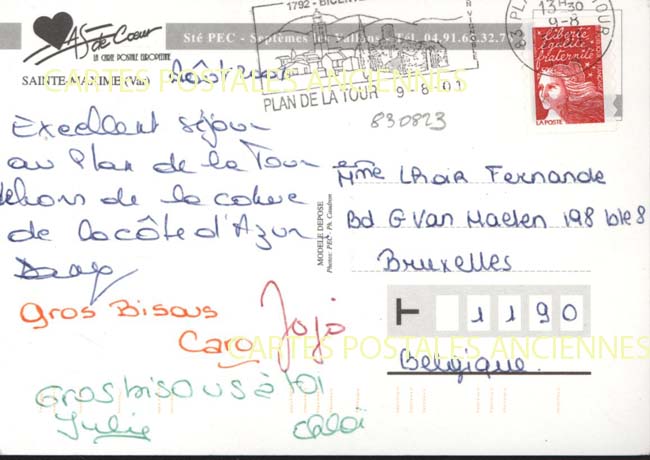 As de Cœur
LA CARTE POSTALE EUROPEENNE
Sté PEC - Septèmes les Vallons - Tél. 04.91.68.32.7
SAINTE-MAXIME (Var)
1792 - BICENT
PLAN DE LA TOUR 9-8-01
83 PLAN TOUR
13H30
9-8
liberté
égalité
fraternité
LA POSTE
830823
CARTES POSTALES ANCIENNES
Excellent séjour
au Plan de la Tour
dehors de la cohue
de la côte d'Azur
Gros Bisous
Caro
Jojo
Gros bisous à toi
Julie
MODELE DEPOSE
Photos: PEC - Ph. Caudron
Mme Fernande
Bd G Van Haelen 198 bte 8
Bruxelles
1190
Belgique
CARTES POSTALES ANCIENNES